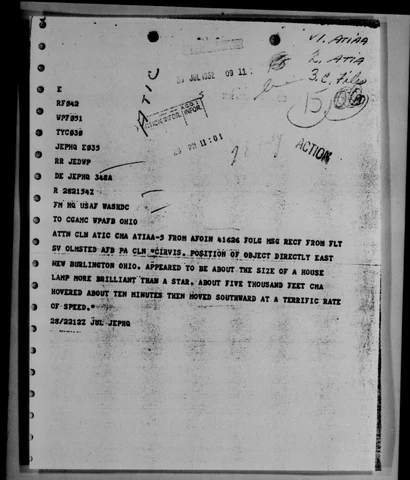 V1. ATIAA
2. ATIA
3. C. Files
29 JUL 1952 09 11
ATIC
15,000
ACTION
PM 11:01
E
RF042
WPF051
TYC038
JEPHQ E035
RR JEDWP
DE JEPHQ 348A
R 282154Z
FM HQ USAF WASHDC
TO CGAMC WPAFB OHIO
ATTN CLN ATIC CMA ATIAA-5 FROM AFOIN 41626 FOLG MSG RECF FROM FLT
SV OLMSTED AFB PA CLN "CIRVIS. POSITION OF OBJECT DIRECTLY EAST
NEW BURLINGTON OHIO. APPEARED TO BE ABOUT THE SIZE OF A HOUSE
LAMP MORE BRILLIANT THAN A STAR. ABOUT FIVE THOUSAND FEET CMA
HOVERED ABOUT TEN MINUTES THEN MOVED SOUTHWARD AT A TERRIFIC RATE
OF SPEED."
28/2212Z JUL JEPHQ